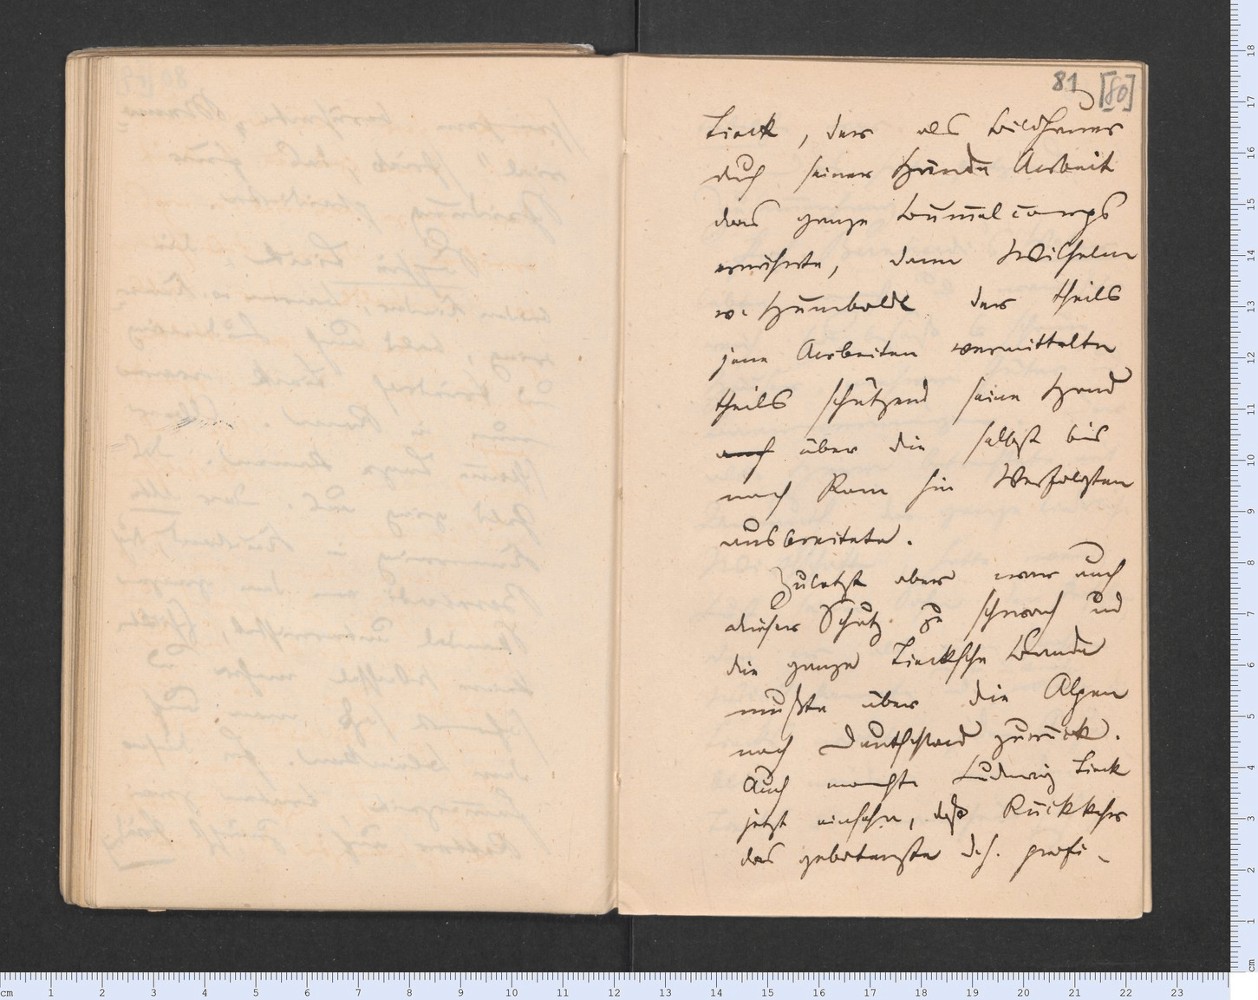 81 [80]
Tieck, der als Bildhauer
duch seiner Hände Arbeit
das ganze Bum̄elcorps
ernährte, dann Wilhelm
v. Humboldt der theils
jene Arbeiten vermittelte
theils schützend seine Hand
auch über die selbst bis
nach Rom hin Verfolgten
ausbreitete.
Zuletzt aber war auch
dieser Schutz zu schwach und
die ganze Tiecksche Bande
mußte über die Alpen
nach Deutschland zurück.
Auch mochte Ludwig Tieck
jetzt einsehn, daß Rückkehr
das gebotenste d. h. profi-